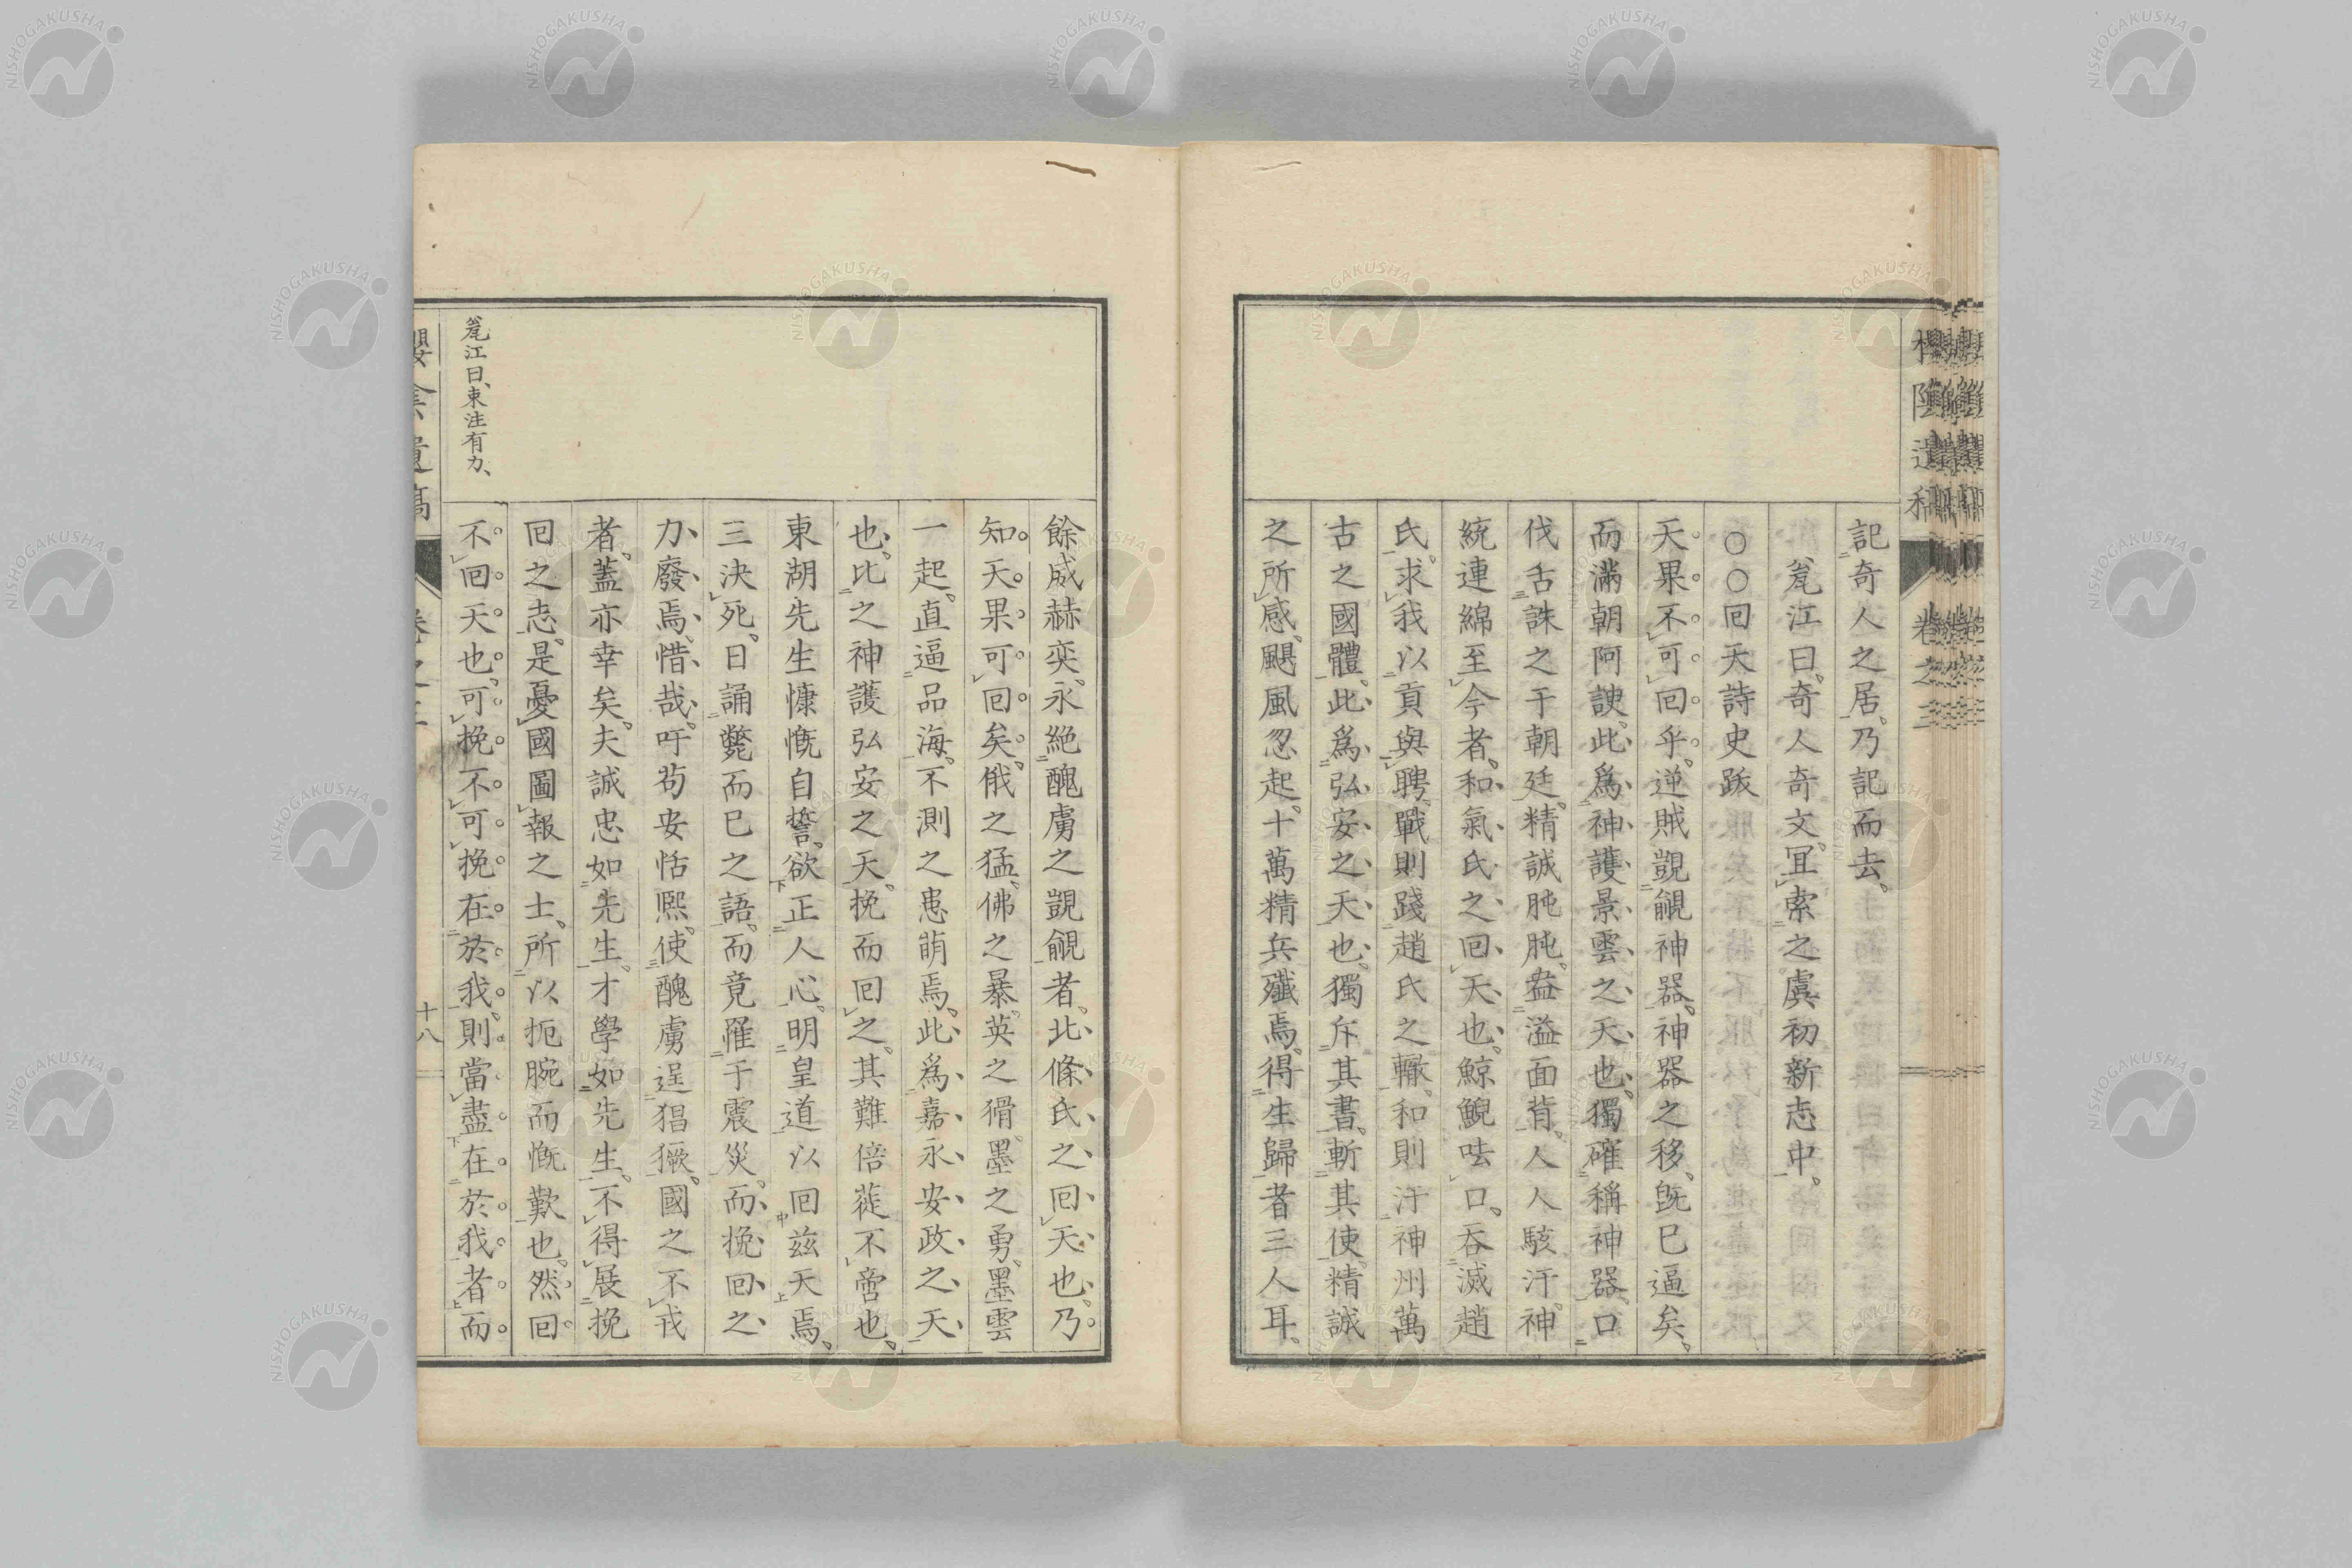 記奇人之居、乃記而去、
甕江曰、奇人奇文、冝索之虞初新志中、
○○回天詩史跋
天果不可回乎、逆賊覬覦神器、神器之移、既已逼矣、
而滿朝阿諛、此爲神護景雲之天也、獨確稱神器、口
伐舌誅之于朝廷、精誠肫肫、盎溢面背、人人駭汗、神
統連綿至今者、和氣氏之回天也、鯨鯢呿口、吞滅趙
氏、求我以貢與聘、戰則踐趙氏之轍、和則汙神州萬
古之國體、此爲弘安之天也、獨斥其書、斬其使、精誠
之所感、颶風忽起、十萬精兵殲焉、得生歸者三人耳、
餘威赫奕、永絕醜虜之覬覦者、北條氏之回天也、乃
知天果可回矣、俄之猛、佛之暴、英之猾、墨之勇、墨雲
一起、直逼品海、不測之患萌焉、此爲嘉永安政之天
也、比之神護弘安之天、挽而回之、其難倍蓰不啻也、
東湖先生慷慨自誓、欲正人心、明皇道以回兹天焉、
三決死、日誦斃而已之語、而竟罹于震災、而挽回之
力廢焉、惜哉、吁苟安恬熙、使醜虜逞猖獗、國之不戎
者、蓋亦幸矣、夫誠忠如先生、才學如先生、不得展挽
回之志、是憂國圖報之士、所以扼腕而慨歎也、然回
不回天也、可挽不可挽在於我、則當盡在於我者、而
甕江曰、束注有力、
櫻陰遺稿
卷之三
十八
NISHOGAKUSHA